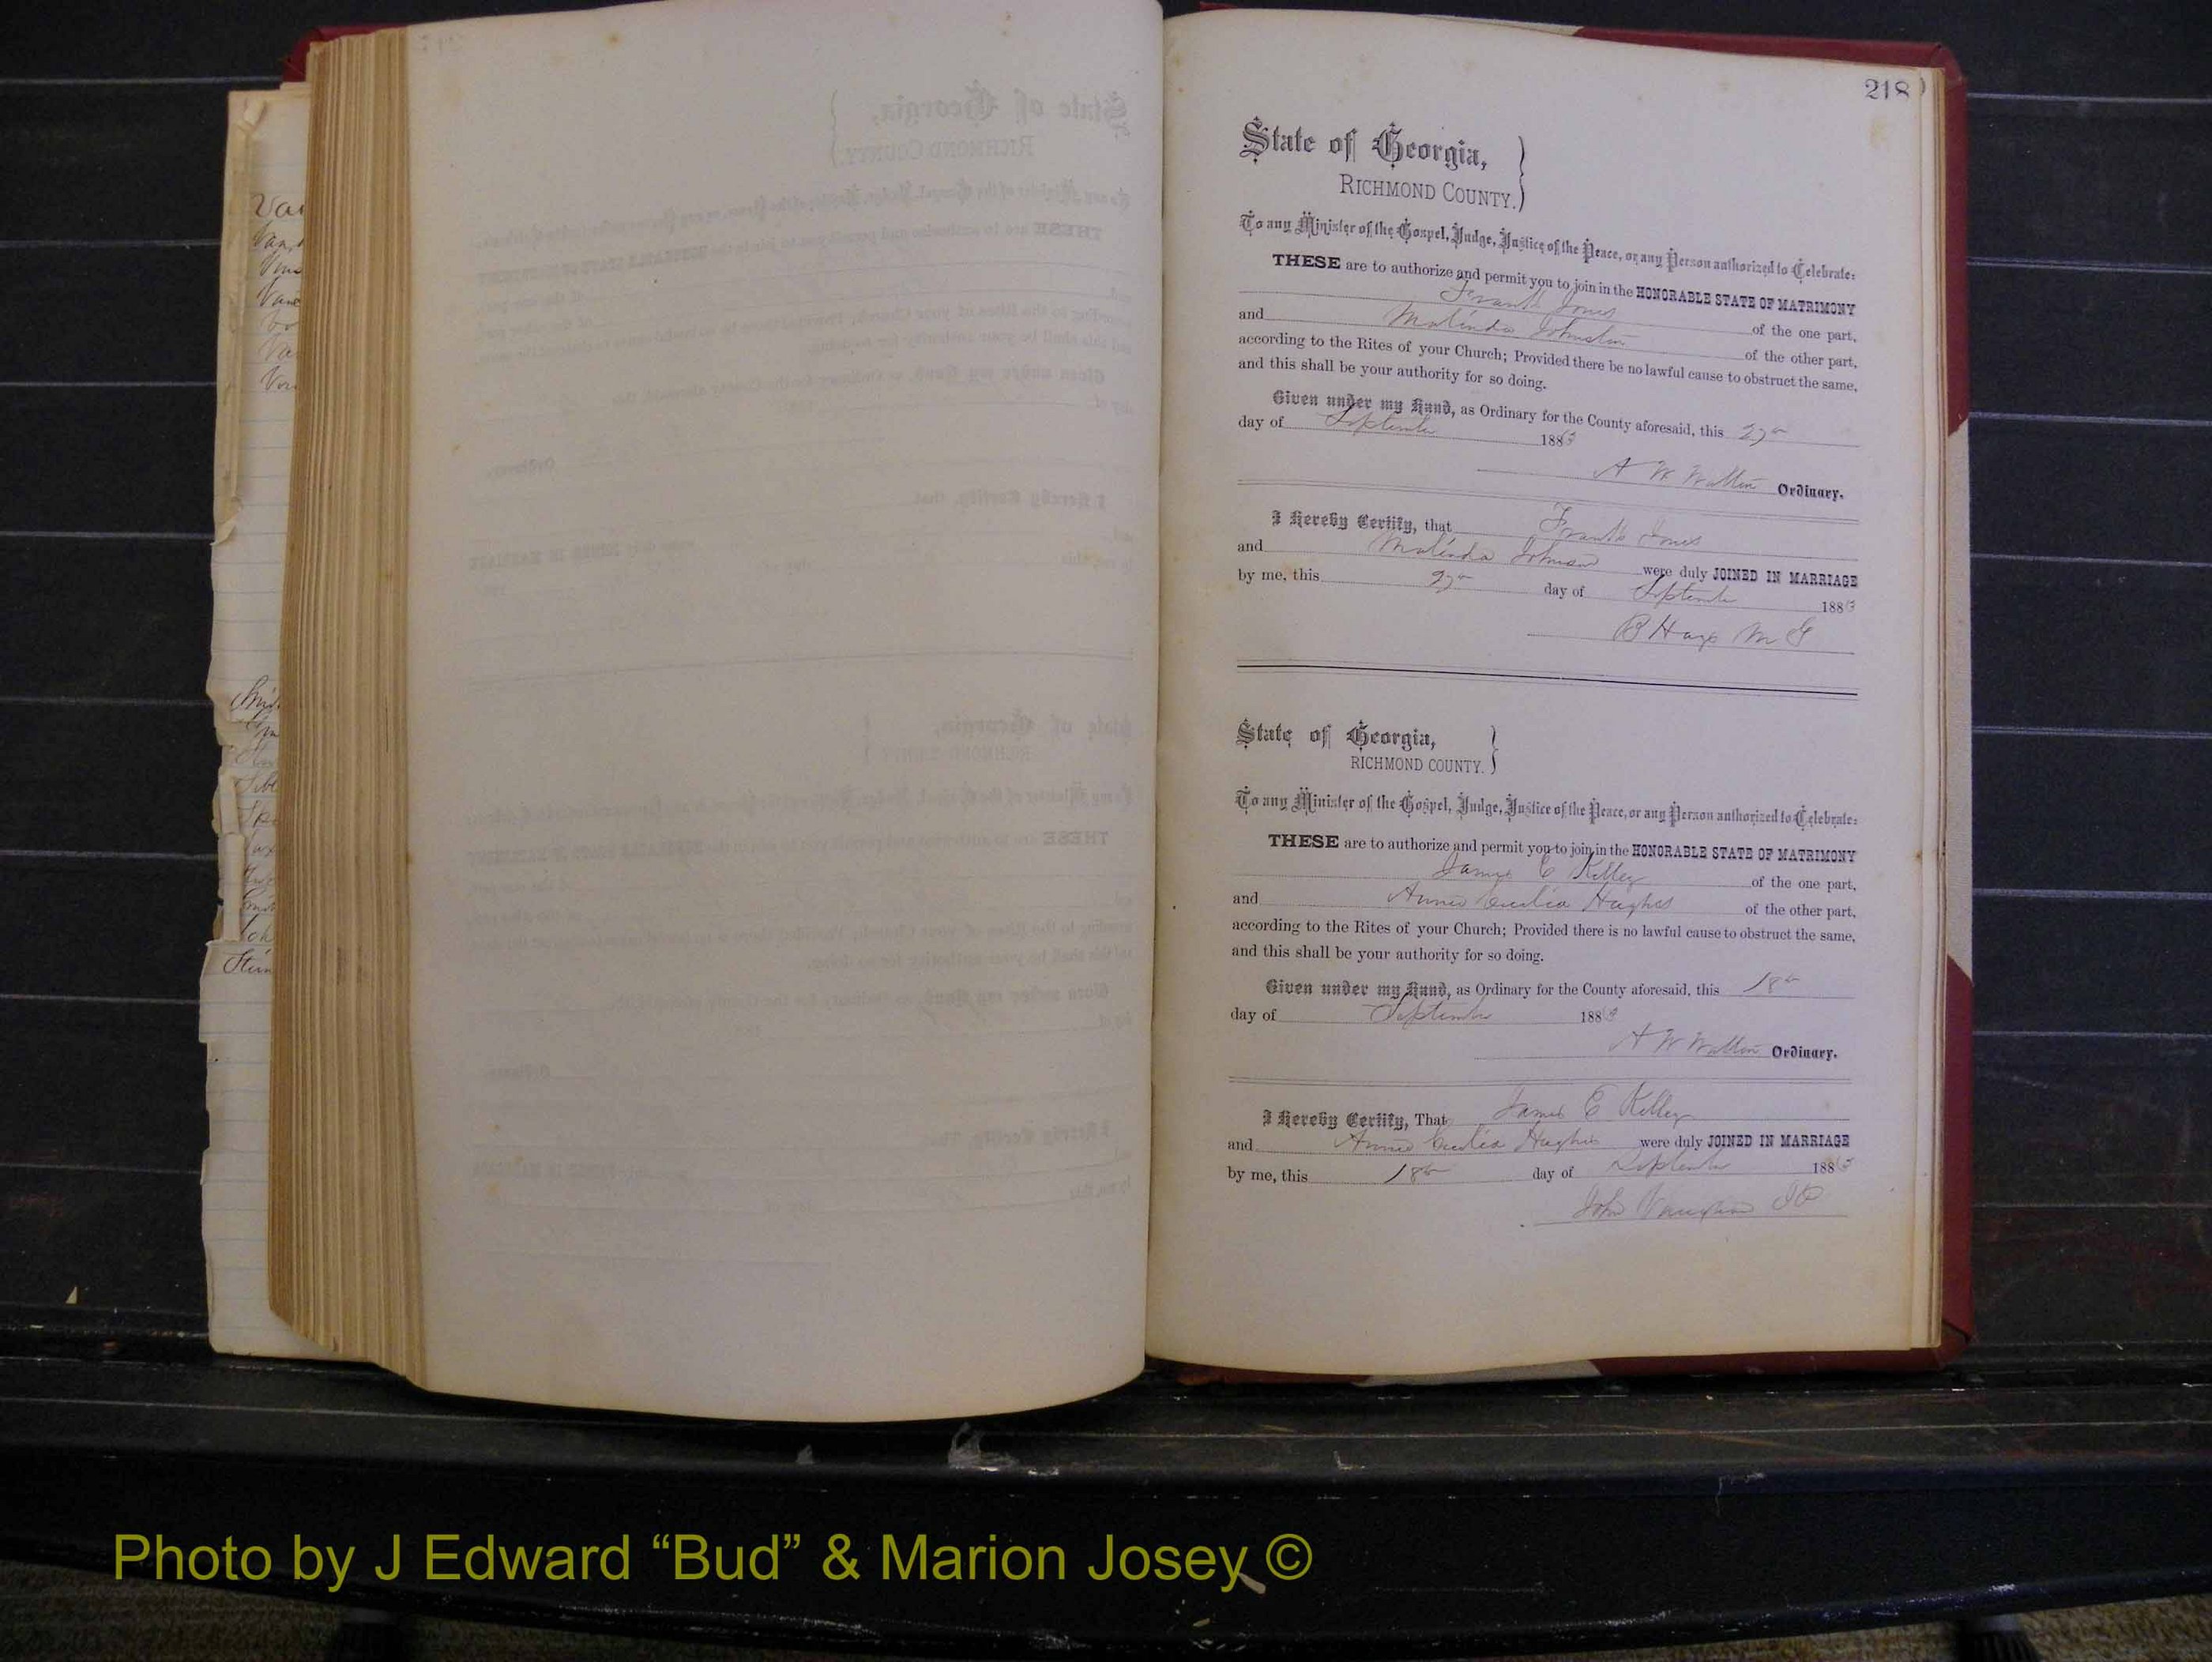 218
State of Georgia,
RICHMOND COUNTY.
To any Minister of the Gospel, Judge, Justice of the Peace, or any Person authorized to Celebrate:
THESE are to authorize and permit you to join in the HONORABLE STATE OF MATRIMONY
Frank Jones of the one part,
and Malinda Johnston of the other part,
according to the Rites of your Church; Provided there be no lawful cause to obstruct the same,
and this shall be your authority for so doing.
Given under my Hand, as Ordinary for the County aforesaid, this 27th
day of September 1883
A W Walton Ordinary.
I Hereby Certify, that Frank Jones
and Malinda Johnson were duly JOINED IN MARRIAGE
by me, this 27th day of September 1883
B Hays M G
State of Georgia,
RICHMOND COUNTY.
To any Minister of the Gospel, Judge, Justice of the Peace, or any Person authorized to Celebrate:
THESE are to authorize and permit you to join in the HONORABLE STATE OF MATRIMONY
James C Kelley of the one part,
and Annie Cecilia Hughes of the other part,
according to the Rites of your Church; Provided there is no lawful cause to obstruct the same,
and this shall be your authority for so doing.
Given under my Hand, as Ordinary for the County aforesaid, this 18th
day of September 1883
A W Walton Ordinary.
I Hereby Certify, That James C Kelley
and Annie Cecilia Hughes were duly JOINED IN MARRIAGE
by me, this 18th day of September 1883
John Vaughan
Photo by J Edward “Bud” & Marion Josey ©